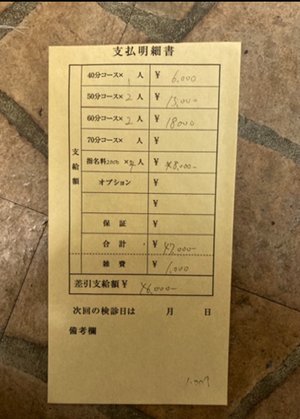 支払明細書
支給額
40分コース× 1 人 ¥ 6,000
50分コース× 2 人 ¥ 15,000-
60分コース× 2 人 ¥ 18,000
70分コース× 人 ¥
指名料2000 ×4 人 ¥ 8,000-
オプション ¥
¥
保証 ¥
合計 ¥ 47,000-
雑費 ¥ 1,000
差引支給額 ¥ 46,000-
次回の検診日は 月 日
備考欄